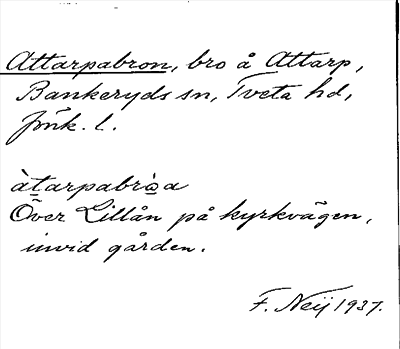 Attarpabron, bro å Attarp,
Bankeryds sn, Tveta hd,
Jönk. l.
àtarpabròa
Över Lillån på kyrkvägen,
invid gården.
F. Neij 1937.